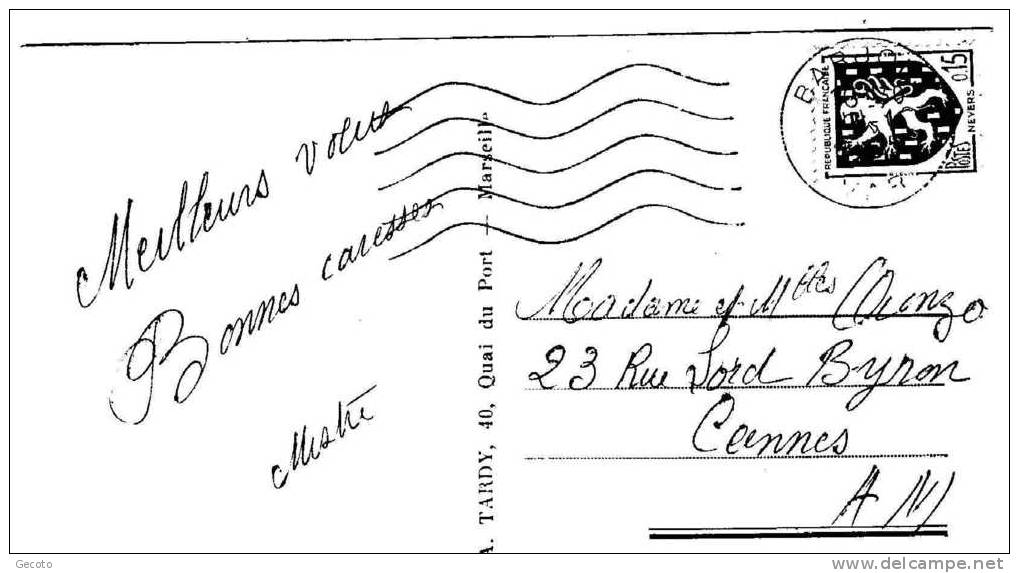 Meilleurs voeux
Bonnes caresses
A. TARDY, 40, Quai du Port — Marseille
REPUBLIQUE FRANÇAISE
0.15
NEVERS
POSTES
VAR
Madame et Mlles
23 Rue Lord Byron
Cannes
A M
Gecoto
delcampe.net